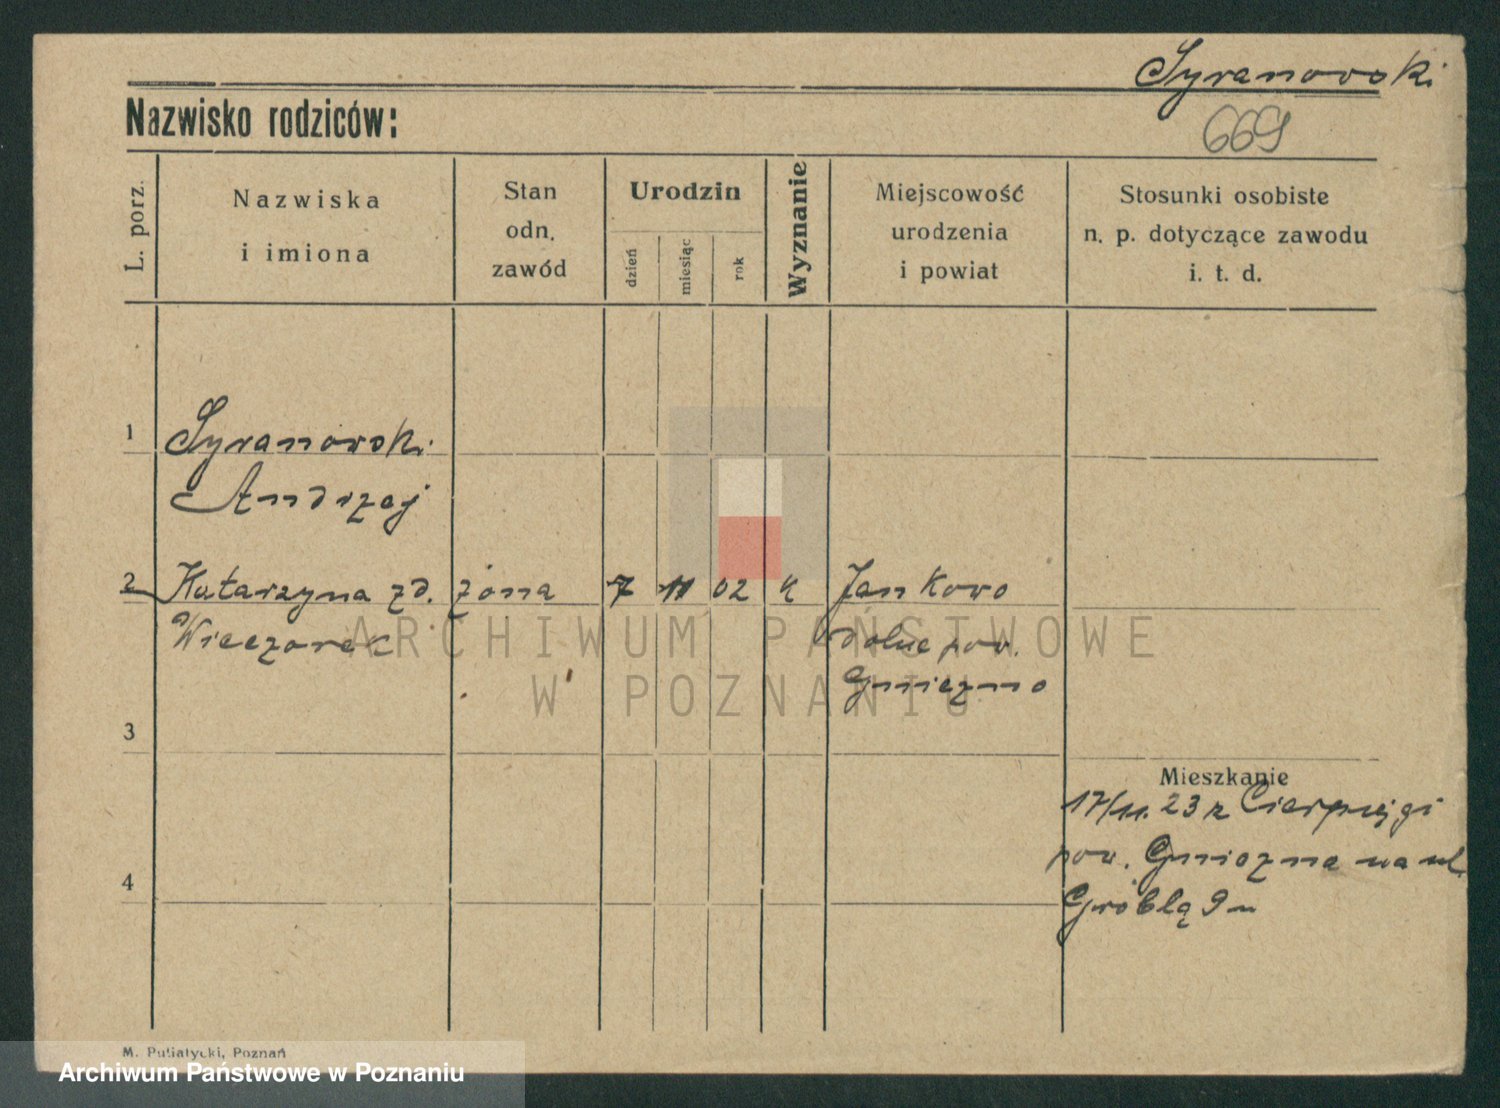 Syranowski
669
Nazwisko rodziców:
L. porz.
Nazwiska
i imiona
Stan
odn.
zawód
Urodzin
dzień
miesiąc
rok
Wyznanie
Miejscowość
urodzenia
i powiat
Stosunki osobiste
n. p. dotyczące zawodu
i. t. d.
1 Syranowski
Andrzej
2 Katarzyna zd. żona 7 11 02 k Jankowo
Wieczorek dolne pow.
Gniezno
3
Mieszkanie
17/11. 23 z
pow. Gniezna na ul.
4
Groblą 9
M. Putiatycki, Poznań
ARCHIWUM PAŃSTWOWE
W POZNANIU
Archiwum Państwowe w Poznaniu